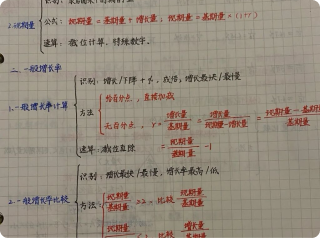 2.现期量
公式：现期量 = 基期量 + 增长量；现期量 = 基期量 × (1+r)
速算：截位计算，特殊数字。
二、一般增长率
识别：增长/下降 + %，成倍，增长最快/最慢
1.一般增长率计算
方法
给百分点，直接加减
无百分点，r = 增长量/基期量 = 增长量/现期量-增长量 = 现期量-基期量/基期量
速算：截位直除
= 现期量/基期量 -1
识别：增长最快/最慢，增长率最高/低
2.一般增长率比较
方法：
现期量/基期量 比较 现期量/基期量
现期量 增长量
基期量 比较